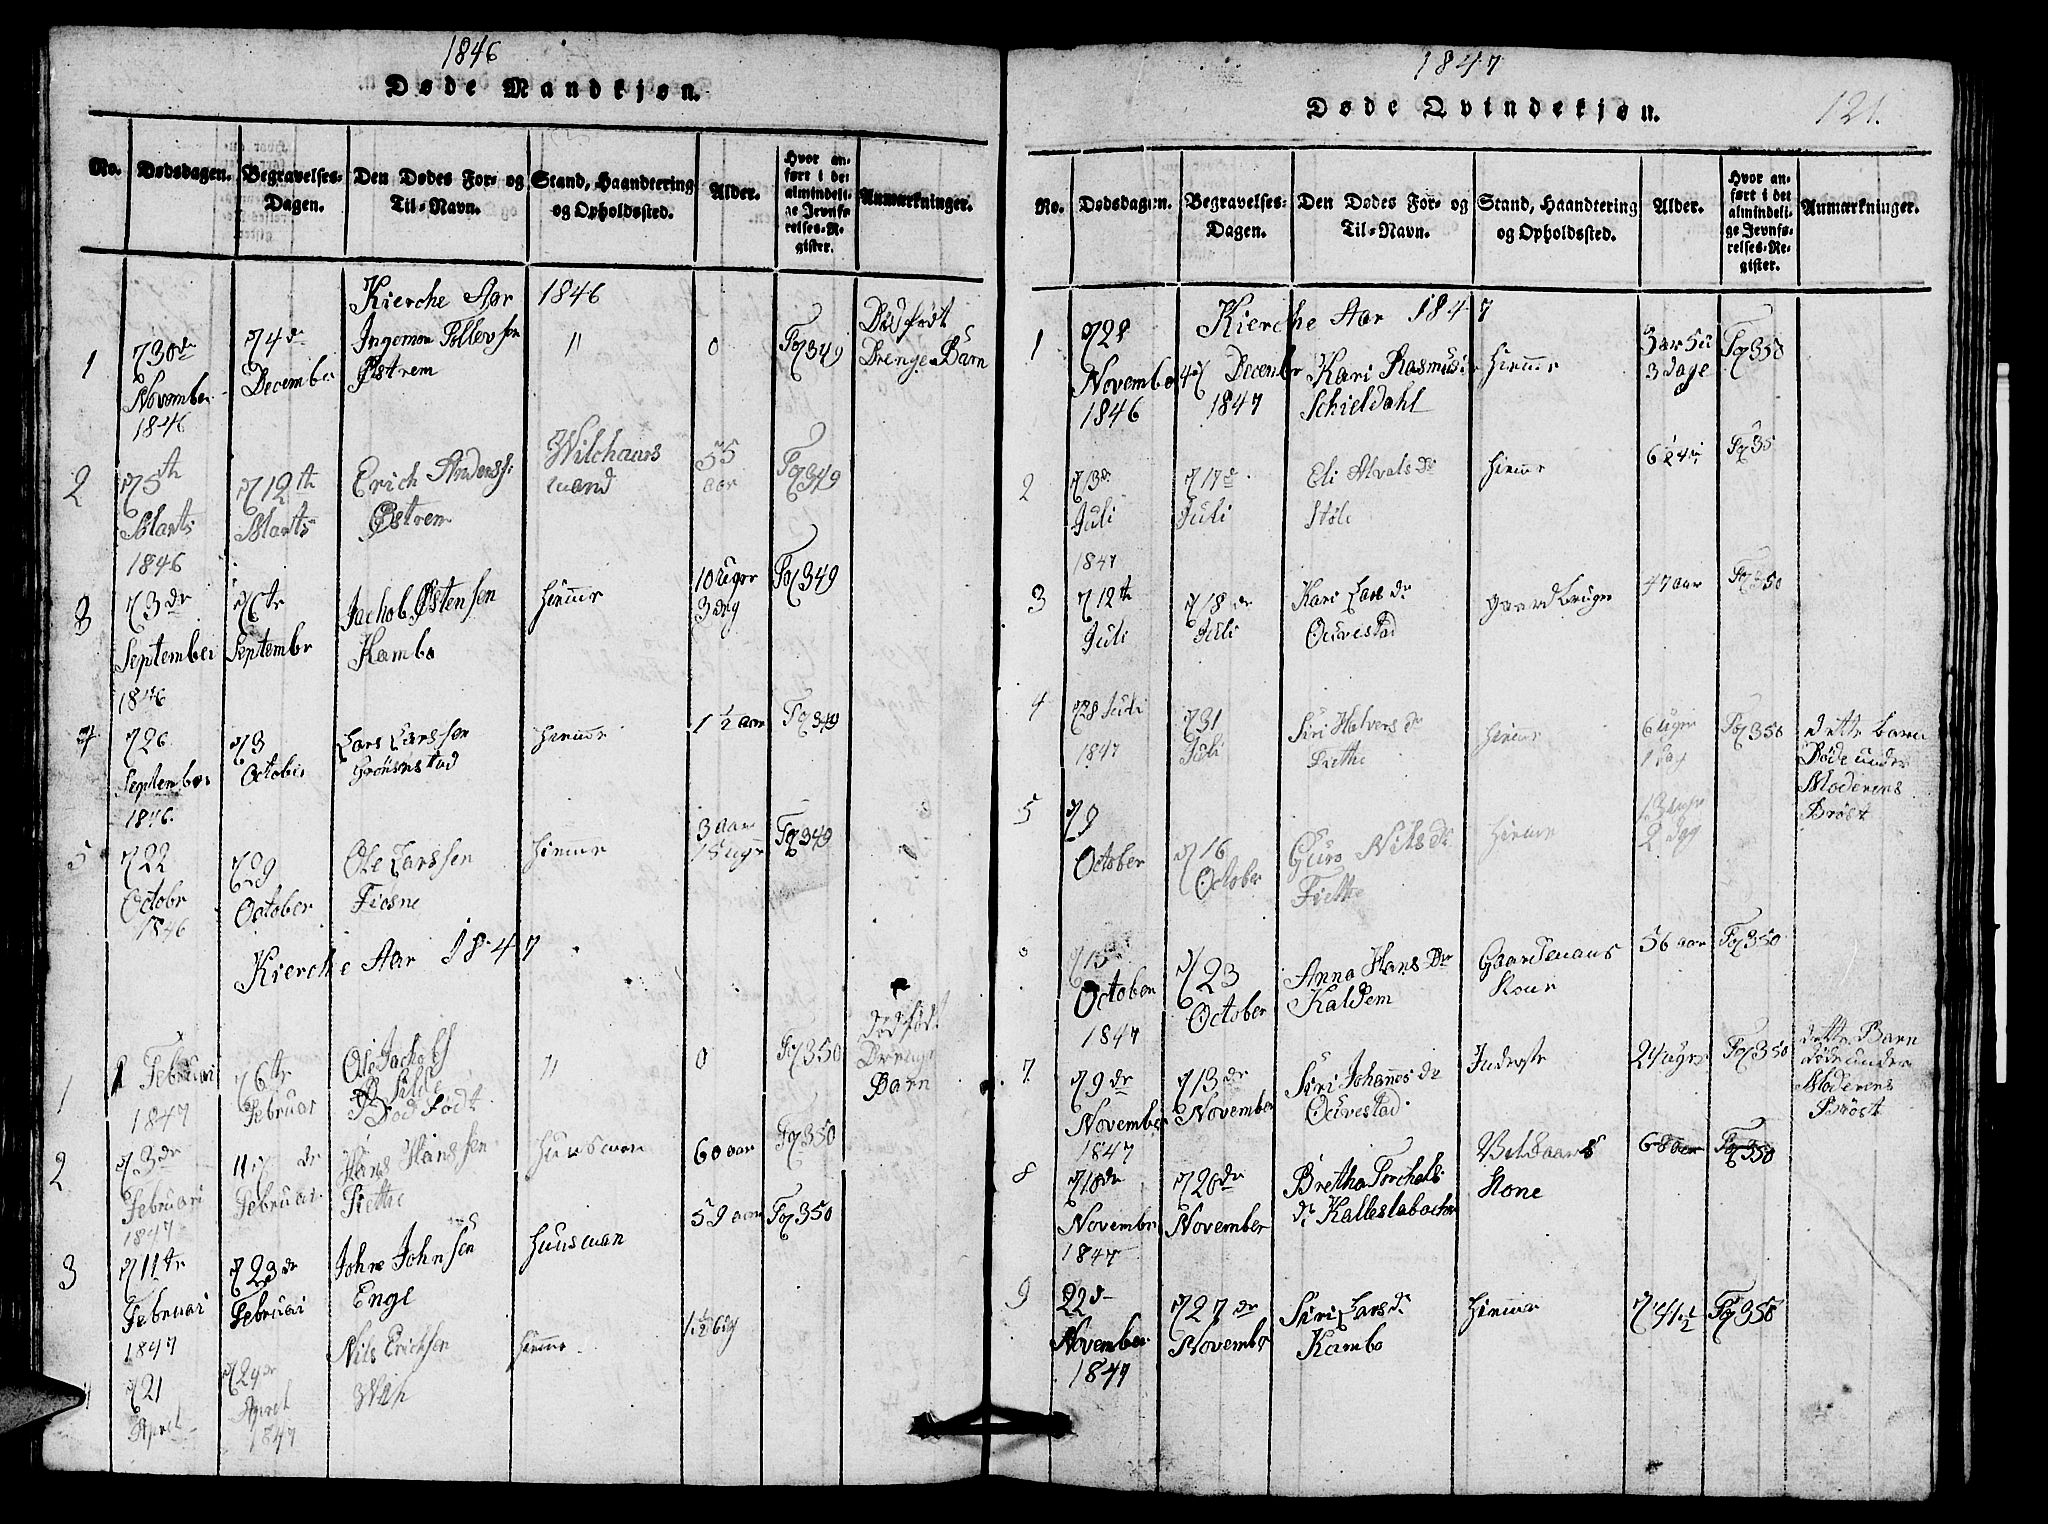 1846
Døde Mandkjøn.
No.
Dødsdagen.
Begravelses-
Dagen.
Den Dødes For- og
Til-Navn.
Stand, Haandtering
og Opholdssted.
Alder.
Hvor an-
ført i det
almindeli-
ge Jevnfø-
relses-Re-
gister.
Anmærkninger.
Kierche Aar 1846
1
30de
November
1846
4de
December
Ingemon Tollevsen
Østrem
"
0
349
Død født
Drenge Barn
2
5th
Marts
1846
12th
Marts
Erich
Østrem
55
aar
349
3
3de
September
1846
6te
Septembr
Jachob Østensen
Kambo
hiemme
10 Uger
3 dag
349
4
26
September
1846
3
October
Lars Larssen
hiemme
1½ aar
349
5
22
Octobr
1846
29
October
Ole Larssen
Fiosne
hiemme
3 aar
15 uger
349
Kierche Aar 1847
1
Februari
1847
6te
Februar
Ole Jachobs
Død Født
"
0
350
Død født
Drenge
Barn
2
3de
Februari
1847
11 de
Februar
Hans Hanssen
Fiette
Huusman
60 aar
350
3
11te
Februari
1847
23de
Februari
John Johnsen
Enge
Huusman
59 aar
350
21
April
24de
April
1847
Nils Erichsen
hiemme
1847
Døde Qvindekjøn.
121.
No.
Dødsdagen.
Begravelses-
Dagen.
Den Dødes For- og
Til-Navn.
Stand, Haandtering
og Opholdssted.
Alder.
Hvor an-
ført i det
almindeli-
ge Jevnfø-
relses-Re-
gister.
Anmærkninger.
Kierche Aar 1847
1
28
November
1846
4 December
1847
Kari Rasmus
Schieldahl
hiemme
3 aar
3 dage
350
2
13de
Juli
1847
17de
Juli
Eli
Støle
hiemme
35
3
12te
Juli
18de
Juli
Kari Larsdr
Ourestad
Gaardbruger
47 aar
350
4
28 Juli
1847
31
Juli
Siri Halvorsdr
Fiette
hiemme
6 uger
1 dag
350
dette barn
Døde under
Moderens
Brøst
5
9
October
16
October
Guro Nilsdr
Fiette
hiemme
2 dag
15
October
1847
23
October
Anna Hansdr
Kaldem
Gaardmans
Kone
56 aar
350
7
9de
November
1847
13de
November
Siri Johannesdr
Ourestad
Inderste
24 uger
350
dette Barn
døde under
Moderens
Brøst
8
18de
Novembr
1847
20de
November
Bretha Torchels
dr Kalleslabacken
Kone
68 aar
350
9
22de
November
1847
27de
November
Siri Larsdr
Kambo
hiemme
350